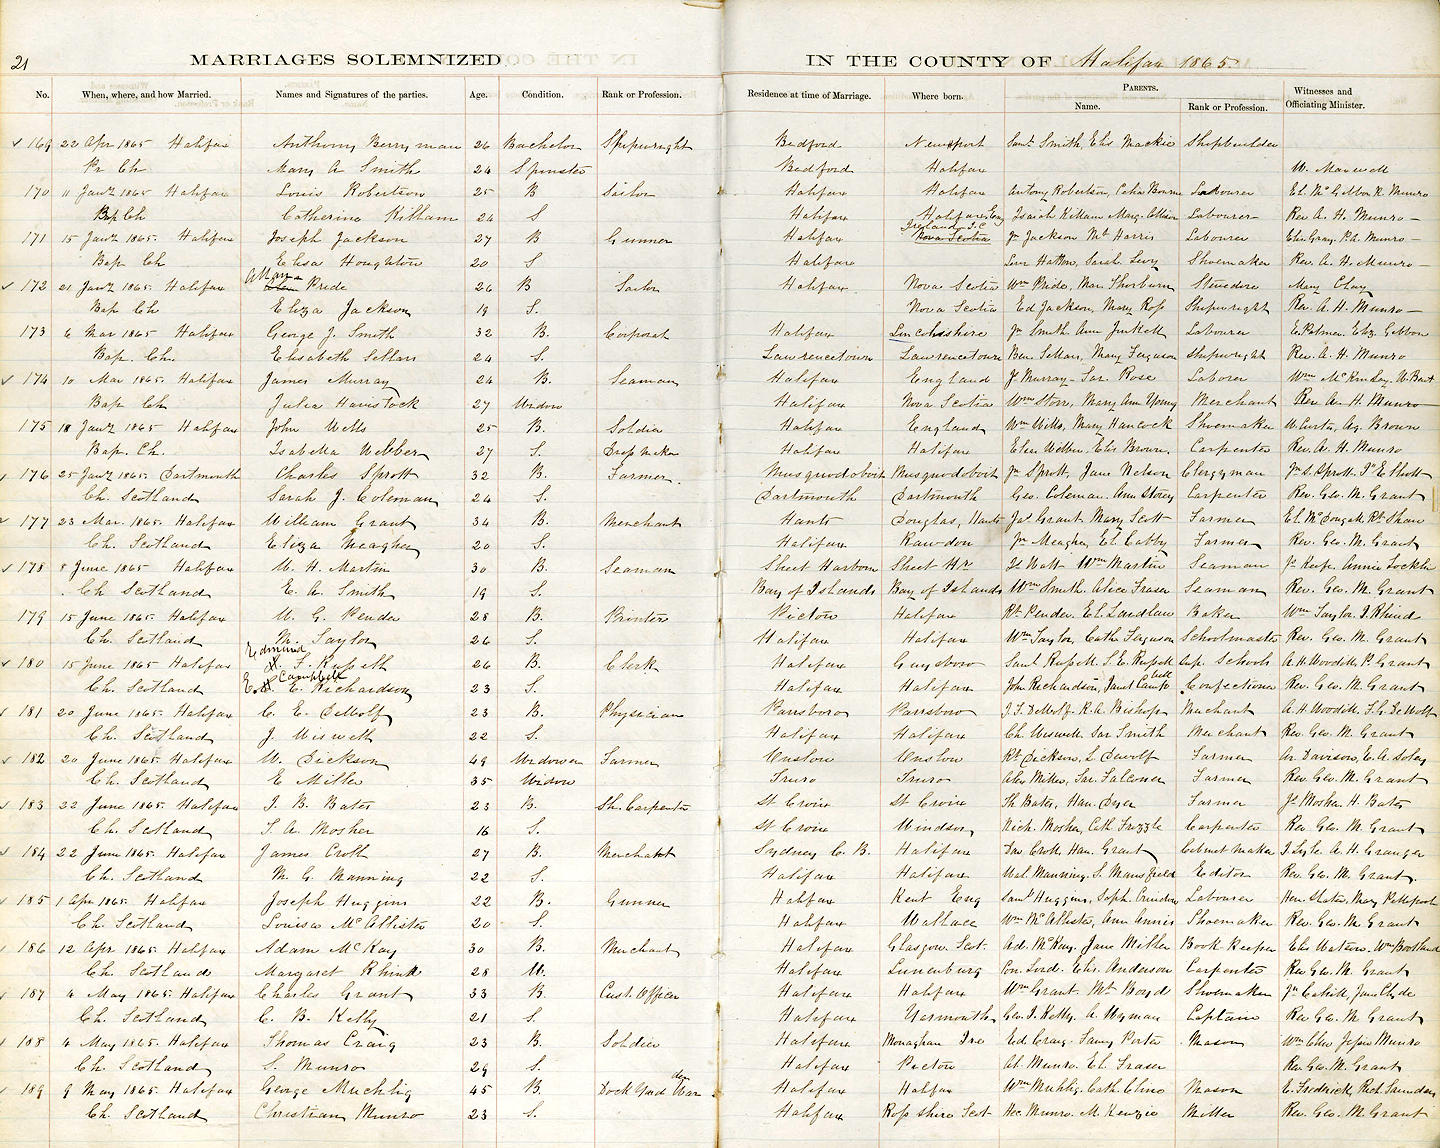 21 MARRIAGES SOLEMNIZED IN THE COUNTY OF Halifax 1865
No. When, where, and how Married. Names and Signatures of the parties. Age. Condition. Rank or Profession. Residence at time of Marriage. Where born. PARENTS. Name. Rank or Profession. Witnesses and Officiating Minister.
169 22 Apr 1865 Halifax Anthony Berryman 26 Bachelor Shipwright Bedford Newport Saml Smith, Elis Mackie Shipbuilder
Pr Ch Mary A Smith 24 Spinster Bedford Halifax W. Maxwell
170 11 Jany 1865 Halifax Louis Robertson 25 B Sailor Halifax Halifax Antony Robertson, Celia Bourne Labourer El. McGibbon R. Munro
Bap Ch Catherine Killam 24 S Halifax Halifax Isaiah Killam Marg. Labourer Rev A. H. Munro
171 15 Jany 1865. Halifax Joseph Jackson 27 B Gunner Halifax Nova Scotia Jn Jackson Mt Harris Labourer Eliz. Gray. P. A. Munro
Bap Ch Elisa Houghton 20 S Halifax Sarah Levy Shoemaker Rev. A. H. Munro
172 21 Jany 1865. Halifax Pride 26 B Sailor Halifax Nova Scotia Wm Pride, Mar. Thorburn Stevedore Mary Clay
Bap Ch Eliza Jackson 19 S. Nova Scotia Ed Jackson, Mary Ross Shipwright Rev. A. H. Munro
173 6 Mar 1865 Halifax George J. Smith 32 B. Corporal Halifax Lincolnshire Jn Smith Ann Labourer Eliz. Gibbon
Bap. Ch. Elisabeth Sellars 24 S. Lawrencetown Lawrencetown Ben. Sellars, Mary Ferguson Shipwright Rev. A. H. Munro
174 10 Mar 1865. Halifax James Murray 24 B. Seaman Halifax England J Murray - Sar. Rose Laborer Wm McKinlay. W. Bent
Bap Ch Julia Havistock 27 Widow Halifax Nova Scotia Wm Storr, Mary Ann Young Merchant Rev. A. H. Munro
175 18 Jany 1865 Halifax John Wells 25 B. Soldier Halifax England Wm Wells, Mary Hancock Shoemaker W. Curtis, Ag. Brown
Bap. Ch. Isabella Webber 27 S. Dress Maker Halifax Halifax Eben Webber. Elis Brown. Carpenter Rev. A. H. Munro
176 25 Jany 1865. Dartmouth Charles Sprott 32 B. Farmer. Musquodoboit Musquodoboit Jn Sprott, Jane Nelson Clergyman Jn S. Sprott.
Ch. Scotland Sarah J. Coleman 24 S. Dartmouth Dartmouth Geo. Coleman. Ann Storey Carpenter Rev. Geo. M. Grant
177 23 Mar. 1865. Halifax William Grant 34 B. Merchant Hants Douglas, Hants Jas Grant Mary Scott Farmer El. McDougall Rt Shaw
Ch. Scotland Eliza Meagher 20 S. Halifax Rawdon Jn Meagher, El. Cabby Farmer Rev. Geo. M. Grant
178 8 June 1865 Halifax W. H. Martin 30 B. Seaman Sheet Harbour Sheet Hr Wm Martin Seaman Annie Locklin
Ch Scotland E. A. Smith 19 S. Bay of Islands Bay of Islands Wm Smith. Alice Fraser Seaman Rev. Geo. M. Grant
179 15 June 1865. Halifax W. G. Pender 28 B. Printer Pictou Halifax Rt Pender. El. Laidlaw Baker Wm Taylor. J. Rhind
Ch. Scotland M. Taylor 26 S. Halifax Halifax Wm Taylor, Cath. Ferguson Schoolmaster Rev. Geo. M. Grant
180 15 June 1865 Halifax Edmund F. Russell 26 B. Clerk Halifax Guysboro Saml Russell. S. E. Russell Sup. Schools A. H. Woodill, P. Grant
Ch. Scotland E. Campbell E. Richardson 23 S. Halifax Halifax John Richardson, Janet Campbell Confectioner Rev. Geo. M. Grant
181 20 June 1865. Halifax C. E. DeWolf 23 B. Physician Parrsboro Parrsboro J. F. DeWolf. R. A. Bishop Merchant A. H. Woodill. F. G. DeWolf
Ch. Scotland J. Wiswell 22 S. Halifax Halifax Ch. Wiswell. Sar Smith Merchant Rev. Geo. M. Grant
182 20 June 1865. Halifax W. Dickson 49 Widower Farmer Onslow Onslow Rt Dickson, L Dewolf Farmer Ar. Davison, E. A. Soley
Ch. Scotland E Miller 35 Widow Truro Truro Alex Miller, Sar. Falconer Farmer Rev. Geo. M. Grant
183 22 June 1865. Halifax J. B. Bates 23 B. Sh. Carpenter St Croix St Croix Th. Bates, Han. Dyer Farmer Js Mosher. H. Bates
Ch. Scotland S. A. Mosher 16 S. St Croix Windsor Rich. Mosher, Cath. Frizzle Carpenter Rev. Geo. M. Grant
184 22 June 1865. Halifax James Croll 27 B. Merchant Sydney C. B. Halifax Dav. Croll, Han. Grant Cabinet Maker J. Lyle. A. H. Granger
Ch. Scotland M. G. Manning 22 S. Halifax Halifax Wal. Manning. S. Mansfield Editor Rev. Geo. M. Grant.
185 1 Apr 1865. Halifax Joseph Huggins 22 B. Gunner Halifax Kent Eng Saml Huggins, Soph. Labourer Hen. Slater, Mary
Ch Scotland Louisa McAllister 20 S. Halifax Wallace Wm McAllister. Ann Annis Shoemaker Rev. Geo. M. Grant
186 12 Apr 1865. Halifax Adam McKay 30 B. Merchant Halifax Glasgow, Scot. Ad. McKay. Jane Miller Book Keeper Ch. Waters.
Ch Scotland Margaret Rhind 28 W. Halifax Lunenburg Con. Lord. Elis. Anderson Carpenter Rev Geo. M. Grant
187 4 May 1865. Halifax Charles Grant 33 B. Cust. Officer Halifax Halifax Wm Grant. Mt Boyd Shoemaker Jn Cahill, Jan Clyde
Ch. Scotland C. B. Kelly 21 S. Halifax Yarmouth Geo. J. Kelly. A. Wyman Captain Rev Geo. M. Grant
188 4 May 1865. Halifax Thomas Craig 23 B. Soldier Halifax Monaghan Ire Ed Craig. Porter Mason Jessie Munro
Ch. Scotland S. Munro 29 S. Halifax Pictou Al. Munro. El. Fraser Rev Geo. M. Grant
189 9 May 1865. Halifax George Muchlig 45 B. Dock Yard Halifax Halifax Wm Muhlig. Cath. Mason C. Frederick, Rich Saunders
Ch. Scotland Christian Munro 23 S. Halifax Ross shire Scot Hec. Munro. M. Kenzie Miller Rev. Geo. M. Grant